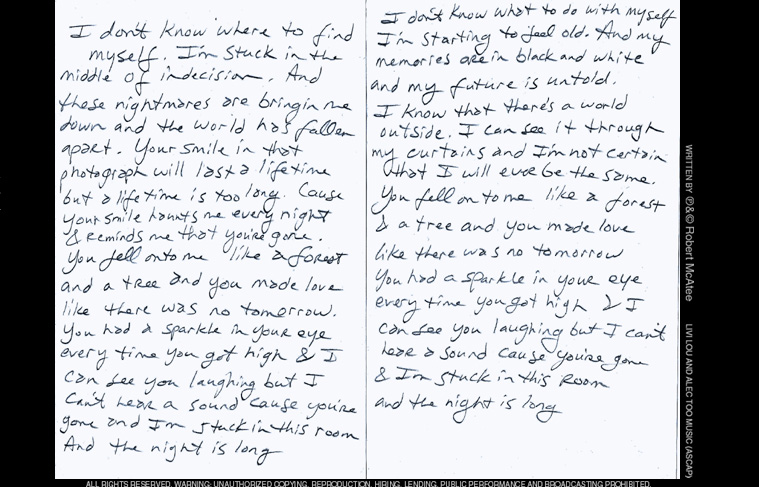 I don't know where to find
myself. I'm stuck in the
middle of indecision. And
these nightmares are bringin me
down and the world has fallen
apart. Your smile in that
photograph will last a lifetime
but a lifetime is too long. Cause
your smile haunts me every night
& reminds me that you're gone.
You fell onto me like a forest
and a tree and you made love
like there was no tomorrow.
You had a sparkle in your eye
every time you got high & I
can see you laughing but I
can't hear a sound cause you're
gone and I'm stuck in this room
And the night is long
I don't know what to do with myself
I'm starting to feel old. And my
memories are in black and white
and my future is untold.
I know that there's a world
outside. I can see it through
my curtains and I'm not certain
that I will ever be the same.
You fell on to me like a forest
& a tree and you made love
like there was no tomorrow
You had a sparkle in your eye
every time you got high & I
can see you laughing but I can't
hear a sound cause you're gone
& I'm stuck in this room
and the night is long
WRITTEN BY ℗&© Robert McAtee LIVI LOU AND ALEC TOO MUSIC (ASCAP)
ALL RIGHTS RESERVED. WARNING: UNAUTHORIZED COPYING, REPRODUCTION, HIRING, LENDING, PUBLIC PERFORMANCE AND BROADCASTING PROHIBITED.